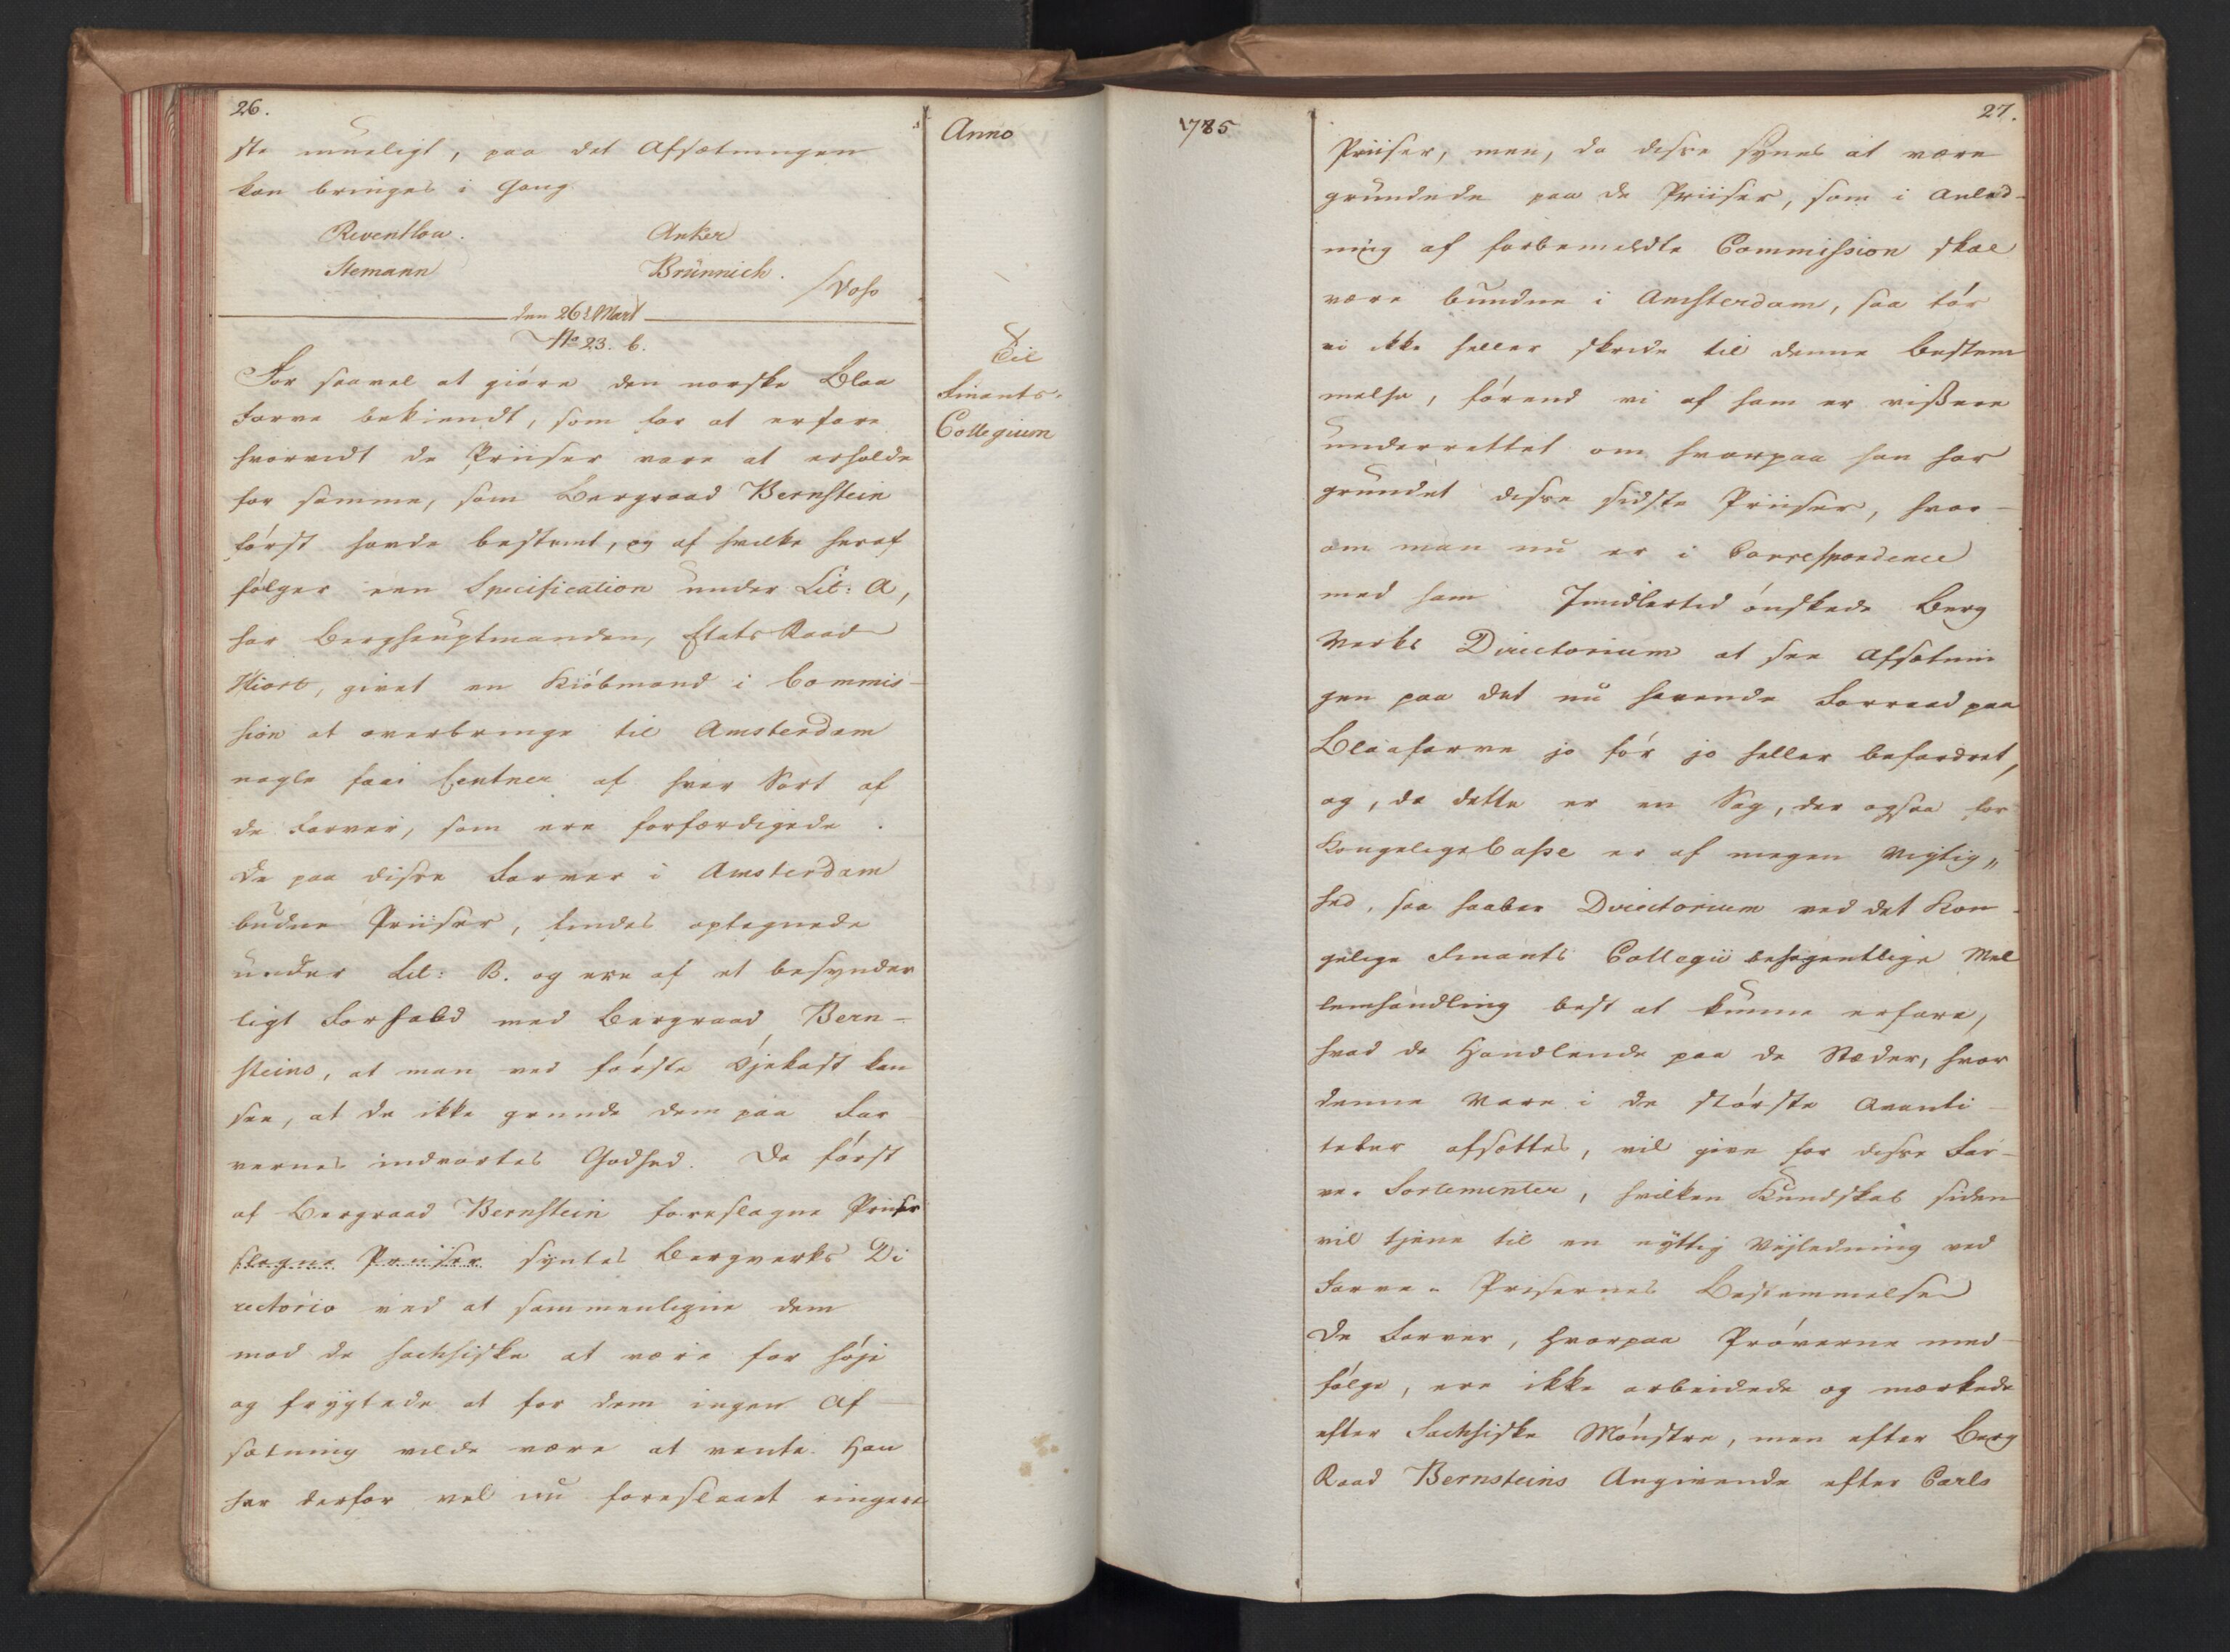 26.
ste mueligt, paa det Afsætningen
kan bringes i Gang.
Reventlow. Anker
Stemann Brünnich.
/Voss
den 26t Mart
No 23. b.
Anno
Til
Finants-
Collegium
For saavel at giöre den norske Blaa
Farve bekiendt, som for at erfare
hvorvidt de Priiser vare at erholde
for samme, som Bergraad Bernstein
först havde bestemt, og af hvilke heraf
fölger een Specification under Lit: A,
har Berghauptmanden, Etats Raad
Hiort, givet en Kiöbmand i Commis-
sion at overbringe til Amsterdam
nogle faae Centner af hver Sort af
de Farver, som ere forfærdigede.
De paa disse Farver i Amsterdam
budne Priiser, findes optegnede
under Lit: B. og ere af et besynder
ligt Forhold med Bergraad Bern-
steins, at man ved förste Öjekast kan
see, at de ikke grunde dem paa Far
vernes indvortes Godhed. De först
af Bergraad Bernstein foreslagne Priiser
slagne Priiser syntes Bergverks Di
rectorio ved at sammenligne dem
mod de sachsiske at være for höje
og frygtede at for dem ingen Af-
sætning vilde være at vente. Han
har derfor vel nu foreslaaet ringere
1785
27.
Priiser, men, da disse synes at være
grundede paa de Priiser, som i Anled-
ning af forbemeldte Commission skal
være bundne i Amsterdam, saa tör
vi ikke heller skride til denne Bestem
melse, förend vi af ham er vißere
underrettet om hvorpaa han har
grundet disse sidste Priiser, hvor-
om man nu er i Correspondence
med ham. Imidlertid önskede Berg
Verks Directorium at see Afsætnin
gen paa det nu havende Forraad paa
Blaafarve jo för jo heller befordret,
og, da dette er en Sag, der ogsaa for
Kongelige Casse er af megen Vigtig„
hed, saa haaber Directorium ved det Kon-
gelige Finants Collegii behagentlige Mel
lemhandling best at kunne erfare,
hvad de Handlende paa de Stæder, hvor
denne Vare i de störste Qvanti-
teter afsættes, vil give for disse Far-
ve-Sortementer, hvilken Kundskab siden
vil tjene til en nyttig Vejledning ved
Farve-Prisernes Bestemmelse
De Farver, hvorpaa Pröverne med-
fölge, ere ikke arbeidede og mærkede
efter Sachsiske Mönstre, men efter Berg
Raad Bernsteins Angivende efter Carls